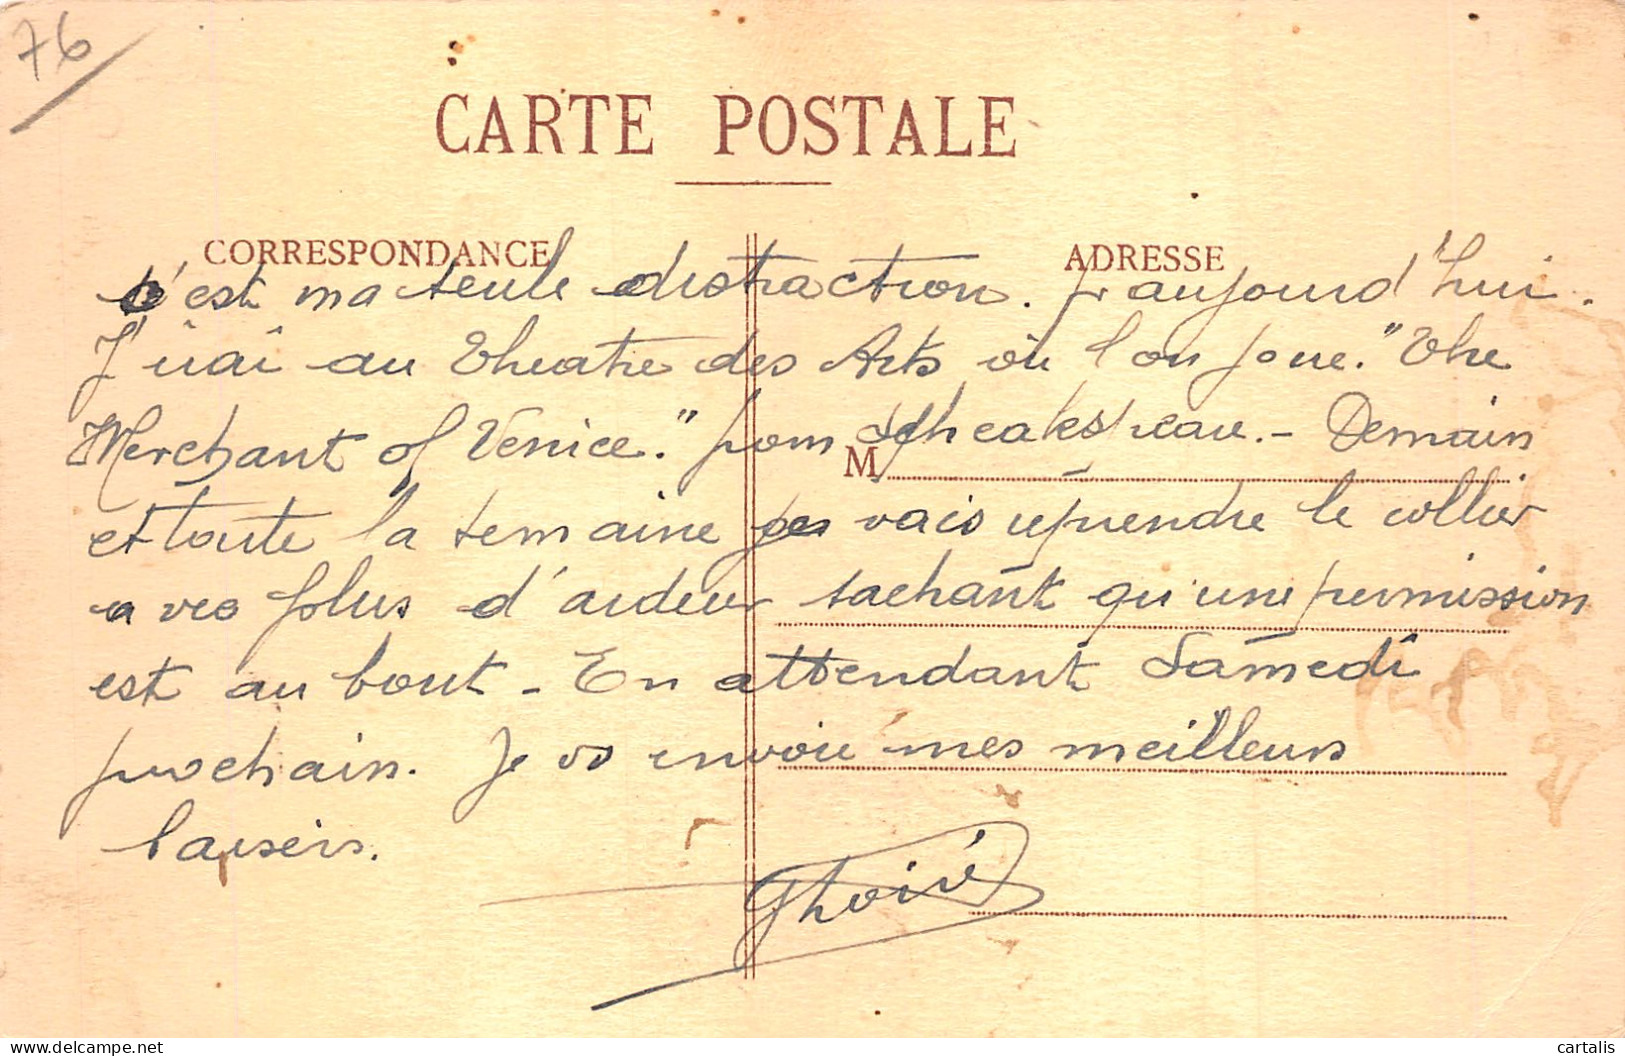 76
CARTE POSTALE
CORRESPONDANCE
ADRESSE
c'est ma seule distraction. pr aujourd'hui.
J'irai au Théatre des Arts où l'on joue. "The
Merchant of Venice." from Scheakespeare. - Demain
et toute la semaine je vais reprendre le collier
avec plus d'ardeur sachant qu'une permission
est au bout - En attendant Samedi
prochain. Je vs envoie mes meilleurs
baisers.
M
cartalis
delcampe.net